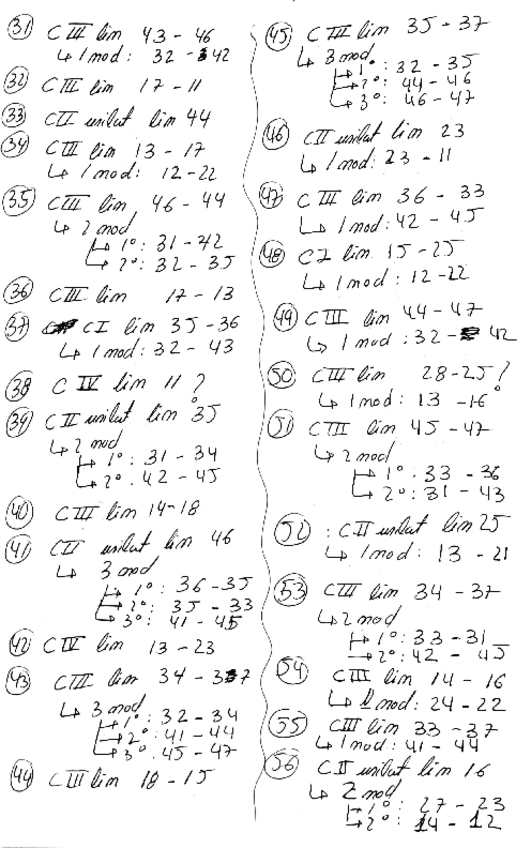 31 C III lim 43 - 46
↳ 1 mod: 32 - 42
32 C III lim 17 - 11
33 C II unilat lim 44
34 C III lim 13 - 17
↳ 1 mod: 12-22
35 C III lim 46 - 44
↳ 2 mod
1°: 31 - 42
2°: 32 - 35
36 C III lim 17 - 13
37 C I lim 35 - 36
↳ 1 mod: 32 - 43
38 C IV lim 11 ?
39 C II unilat lim 35
↳ 2 mod
1°: 31 - 34
2°. 42 - 45
40 C III lim 14-18
41 C II unilat lim 46
↳ 3 mod
1°: 36-35
2°: 35 - 33
3°: 41 - 45
42 C IV lim 13 - 23
43 C III lim 34 - 37
↳ 3 mod
1°: 32 - 34
2°: 41 - 44
3°. 45 - 47
44 C III lim 18 - 15
45 C III lim 35 - 37
↳ 3 mod
1°: 32 - 35
2°: 44 - 46
3°: 46 - 47
46 C II unilat lim 23
↳ 1 mod: 23 - 11
47 C III lim 36 - 33
↳ 1 mod: 42 - 45
48 C I lim 15 - 25
↳ 1 mod: 12-22
49 C III lim 44 - 47
↳ 1 mod: 32 - 42
50 C III lim 28-25 ?
↳ 1 mod: 13 - 16
51 C III lim 45 - 47
↳ 2 mod
1°. 33 - 36
2°: 31 - 43
52 : C II unilat lim 25
↳ 1 mod: 13 - 21
53 C III lim 34 - 37
↳ 2 mod
1°: 33 - 31
2°: 42 - 45
54 C III lim 14 - 16
↳ 1 mod: 24 - 22
55 C III lim 33 - 37
↳ 1 mod: 41 - 44
56 C II unilat lim 16
↳ 2 mod
1°: 27 - 23
2°: 14 - 12